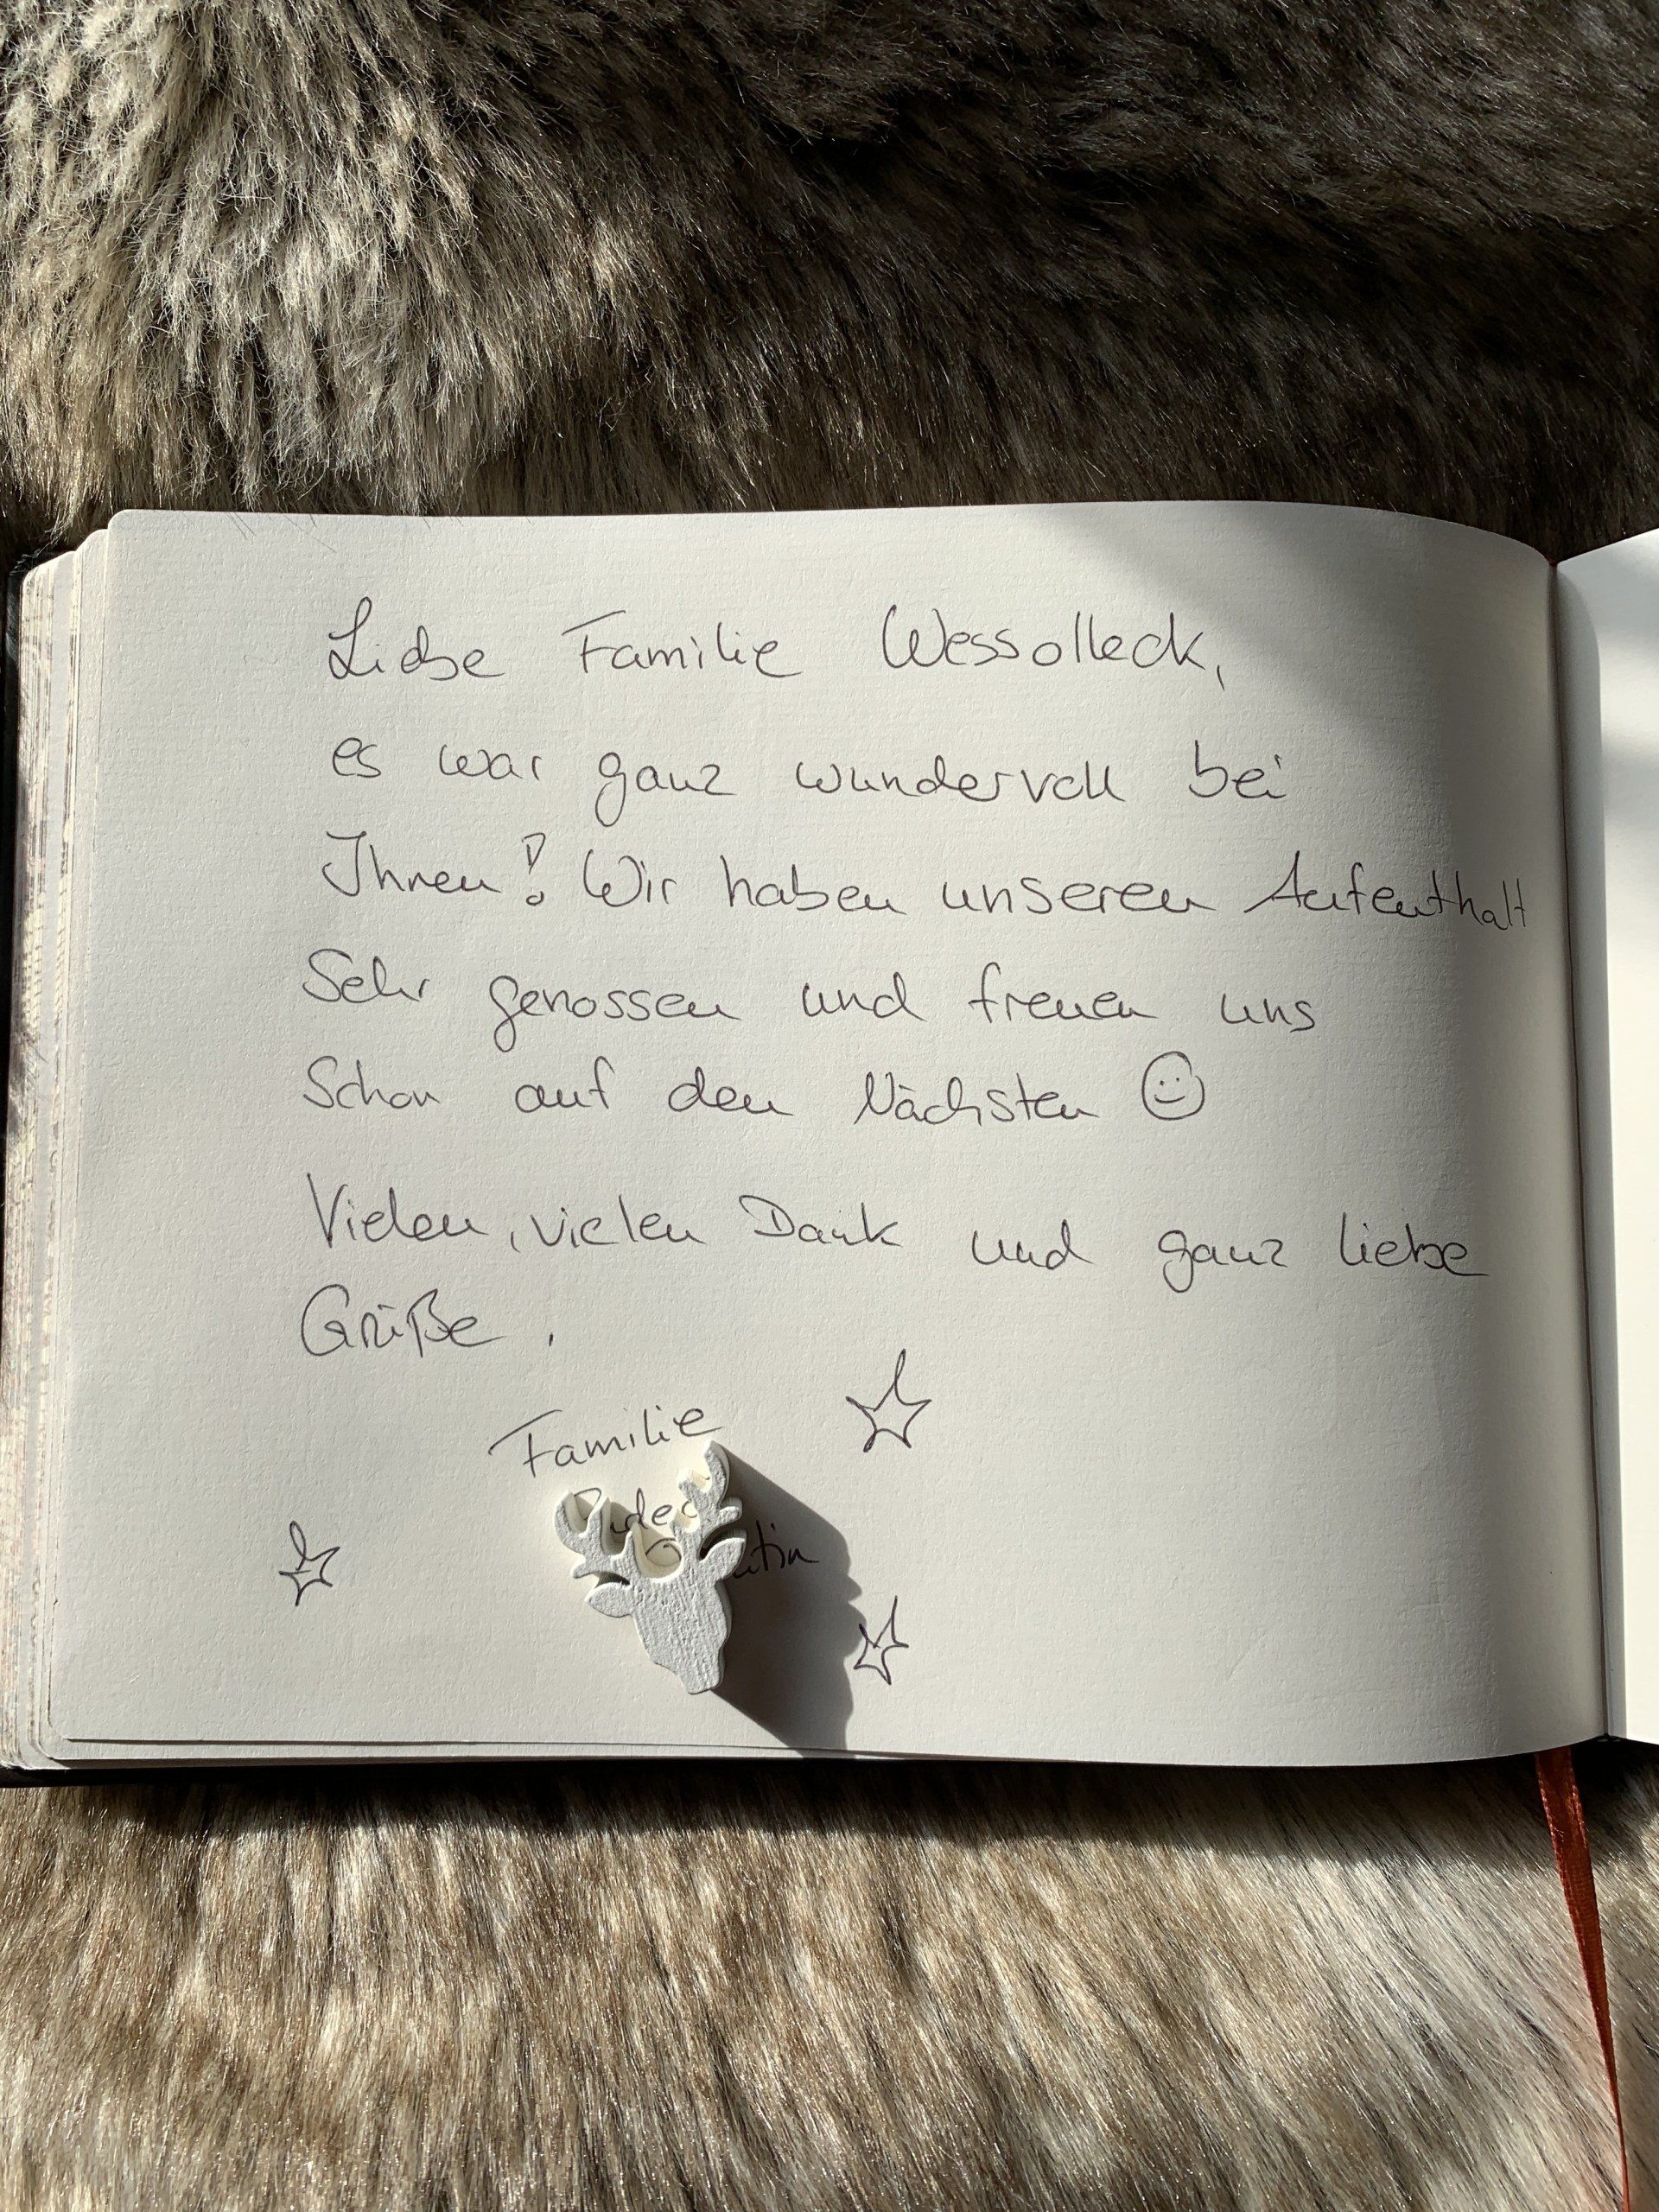 Liebe Familie Wessolleck,
es war ganz wundervoll bei
Ihnen! Wir haben unseren Aufenthalt
Sehr genossen und freuen uns
Schon auf den Nächsten ☺
Vielen, vielen Dank und ganz liebe
Grüße,
Familie